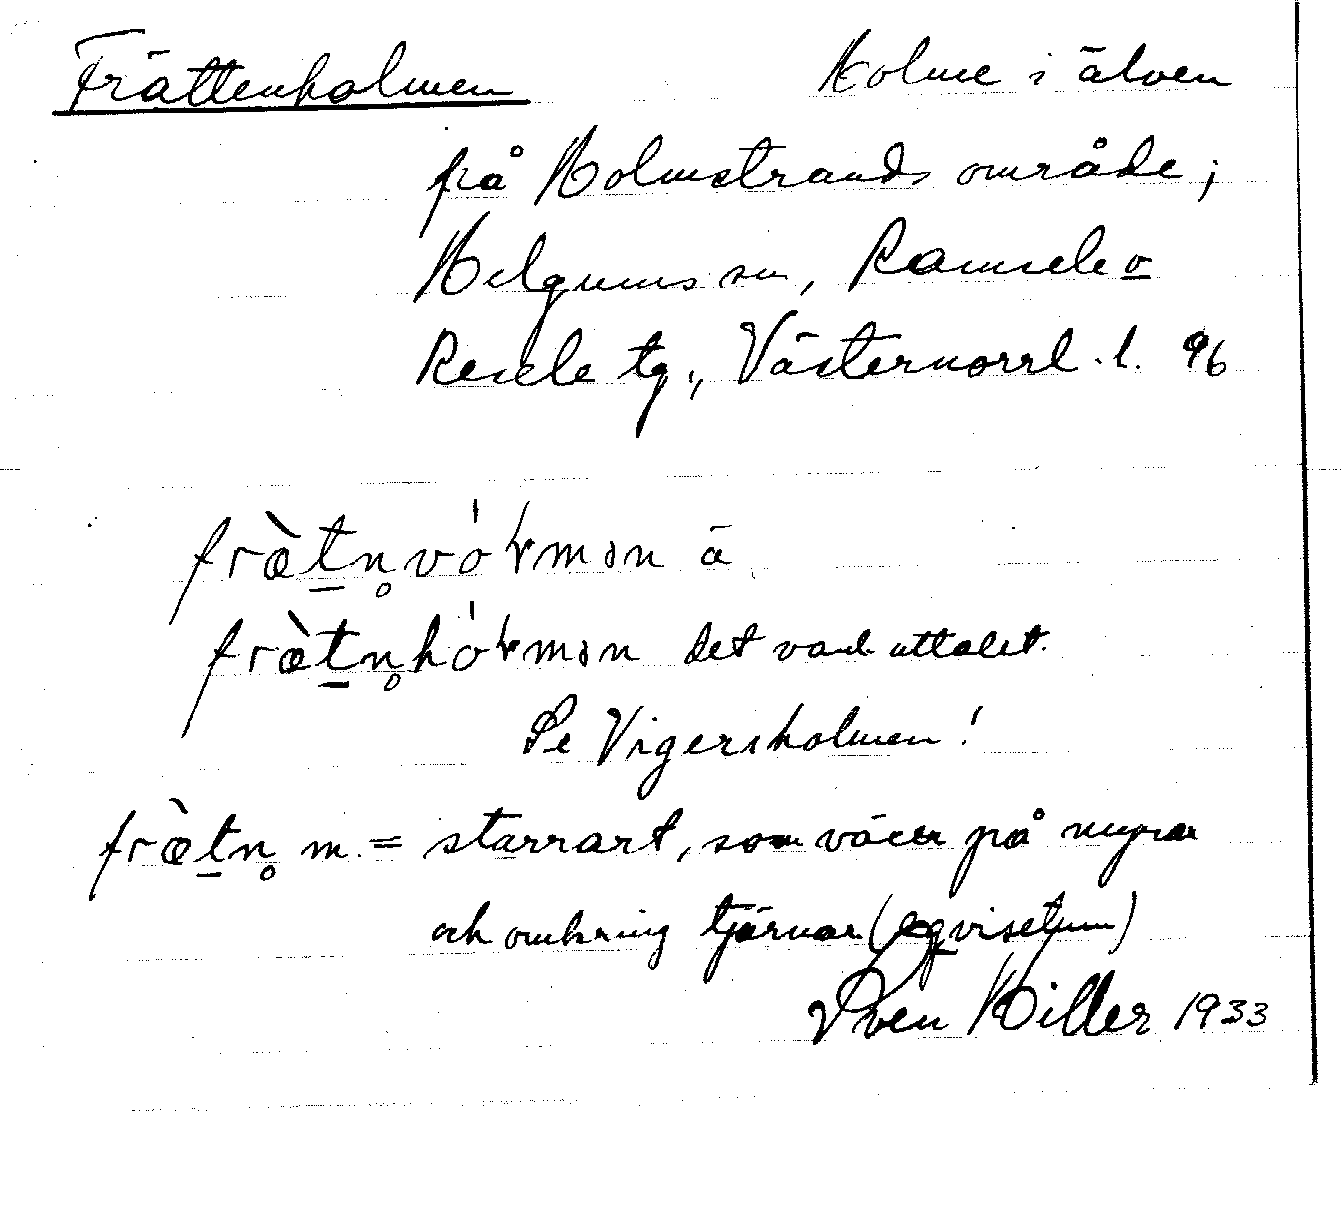 Frättenholmen Holme i älven
på Holmstrands område;
Helgums sn, Ramsele o
Resele tg., Västernorrl. l. 96
fræ̀tn̥vóɽmən ä
fræ̀tn̥hóɽmən det vanl. uttalet.
Se Vigersholmen!
fræ̀tn̥ m. = starrart, som växer på myrar
och omkring tjärnar (eqvisetum)
Sven Hiller 1933